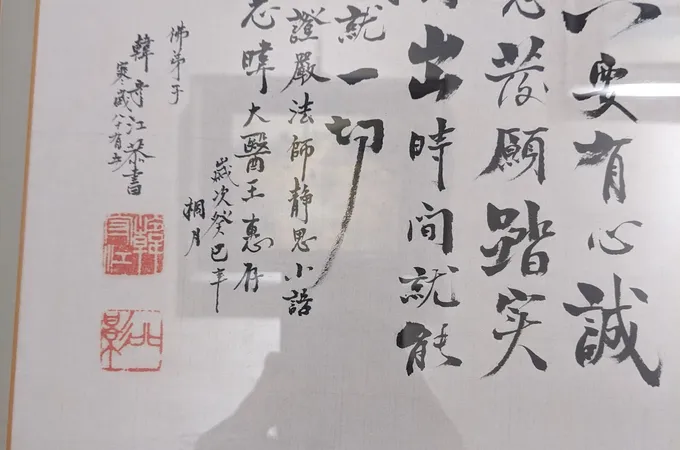 要有心誠
發願踏实
出時間就能
就一切
證嚴法師静思小語
暐大醫王惠存
歲次癸巳年
桐月
佛弟子
韓守江恭書
寒歲八十有五